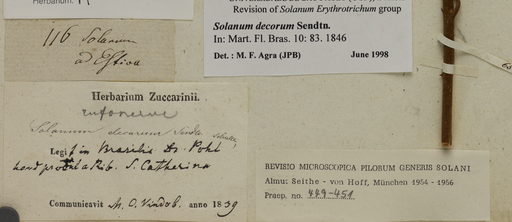 Herbarium.
Revision of Solanum Erythrotrichum group
Solanum decorum Sendtn.
In: Mart. Fl. Bras. 10: 83. 1846
Det. : M. F. Agra (JPB) June 1998
116 Solanum
Herbarium Zuccarinii.
Solanum decorum Sendtn.
Legit in Brasilia Dr. Pohl
S. Catharina
Communicavit M. C. Vindob. anno 1839
REVISIO MICROSCOPICA PILORUM GENERIS SOLANI
Almu: Seithe - von Hoff, München 1954 - 1956
Praep. no. 449-451